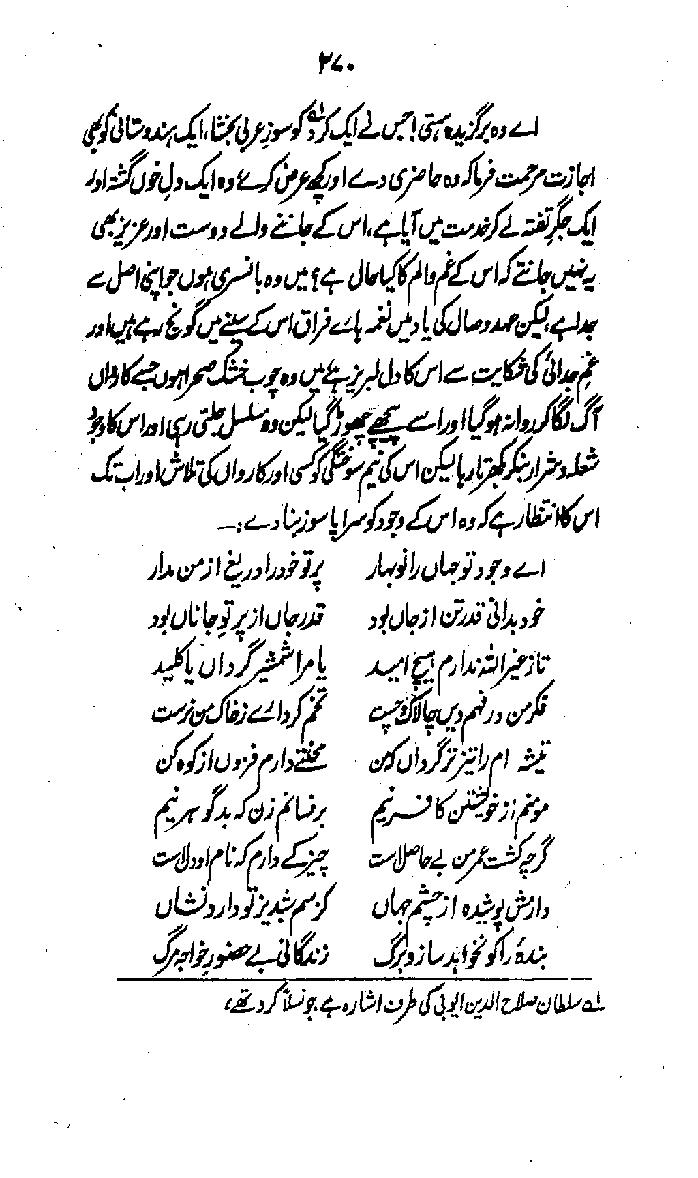 ۲۷۰
اے وہ برگزیدہ ہستی! جس نے ایک کرد؎ کو سوز عربی بخشا، ایک ہندوستانی کو بھی
اجازت مرحمت فرما کہ وہ حاضری دے اور کچھ عرض کرے وہ ایک دل خوں گشتہ اور
ایک جگر تفتہ لے کر خدمت میں آیا ہے، اس کے جاننے والے دوست اور عزیز بھی
یہ نہیں جانتے کہ اس کے غم والم کا کیا حال ہے؟ میں وہ بانسری ہوں جو اپنی اصل سے
جدا ہے، لیکن عہد وصال کی یاد میں نغمہ ہائے فراق اس کے سینے میں گونج رہے ہیں اور
غم جدائی کی شکایت سے اس کا دل لبریز ہے میں وہ چوب خشک صحرا ہوں جسے کارواں
آگ لگا کر روانہ ہو گیا اور اسے پیچھے چھوڑ گیا لیکن وہ مسلسل جلتی رہی اور اس کا وجود
شعلہ و شرار بنکر بکھرتا رہا لیکن اس کی نیم سوختگی کو کسی اور کارواں کی تلاش اور اب تک
اس کا انتظار ہے کہ وہ اس کے وجود کو سراپا سوز بنا دے:۔
اے وجود تو جہاں را نو بہار پر تو خود را دریغ از من مدار
خود بدانی قدر تن از جاں بود قدر جاں از پر توِ جاناں بود
تا ز غیر اللہ ندارم ہیچ امید یا مرا شمشیر گرداں یا کلید
فکر من در فہم دیں چالاک و چست تخم کردارے ز خاک من نرست
تیشہ ام را تیز تر گرداں کہ من محنتے دارم فزوں از کوہ کن
مومنم از خویشتن کافر نیم بر فسانم زن کہ بد گوہر نیم
گرچہ کشت عمر من بے حاصل است چیز کے دارم کہ نام او دل است
دارمش پوشیدہ از چشم جہاں کز سم شبدیز تو دارد نشاں
بندۂ را کو نخواہد ساز و برگ زندگانی بے حضور خواجہ مرگ
لے سلطان صلاح الدین ایوبی کی طرف اشارہ ہے، جو نسلاً کرد تھے،